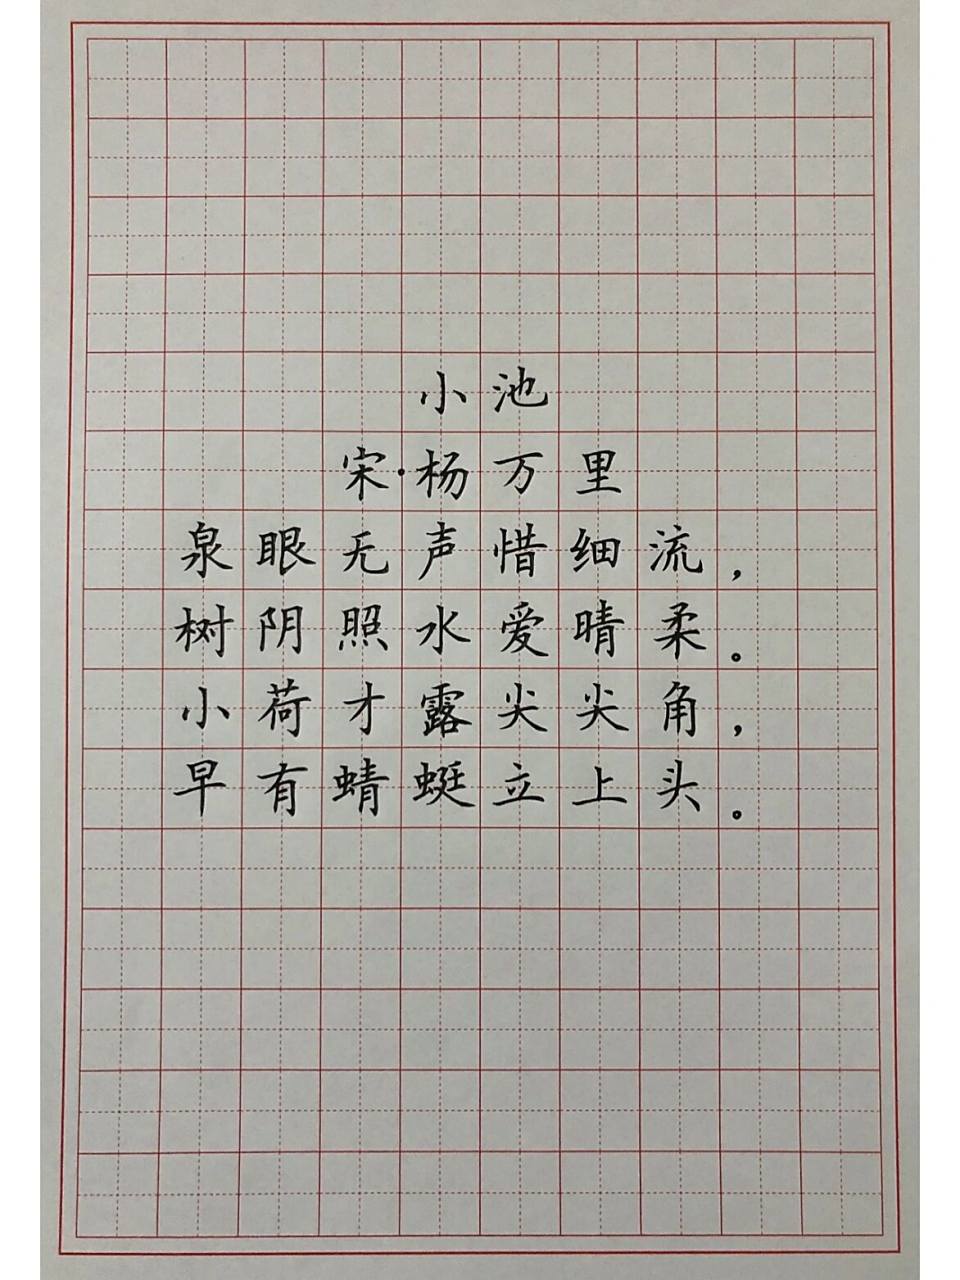 小池
宋·杨万里
泉眼无声惜细流，
树阴照水爱晴柔。
小荷才露尖尖角，
早有蜻蜓立上头。